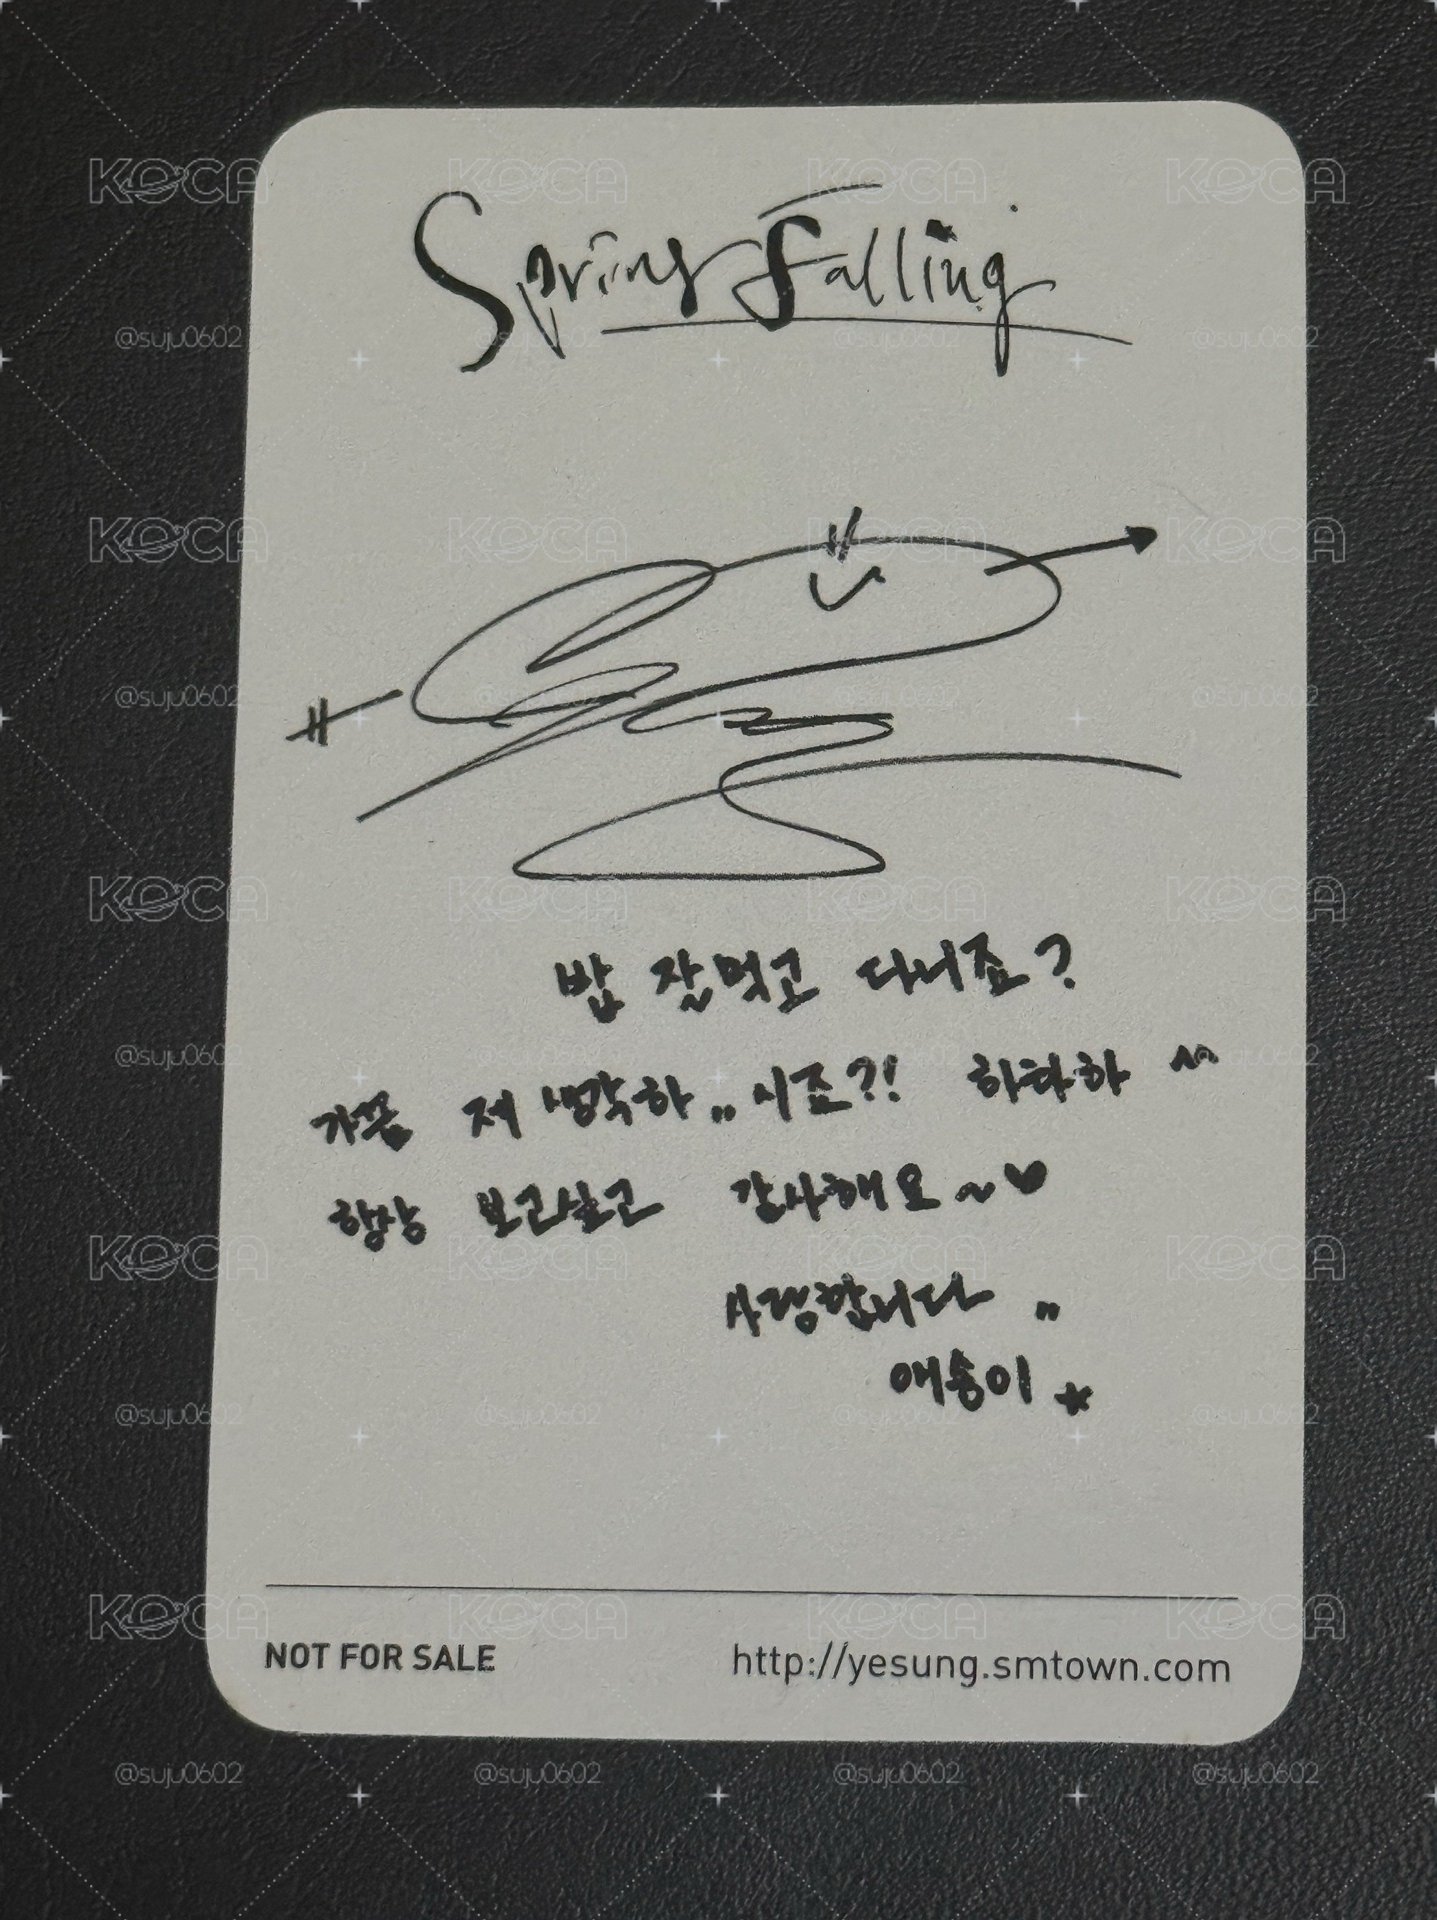 Spring Falling
밥 잘먹고 다니죠?
가끔 저 생각하..시죠?! 하하하 ^^
항상 보고싶고 감사해요~♥
사랑합니다 ..
예송이 ★
NOT FOR SALE http://yesung.smtown.com
KOCA
@suju0602